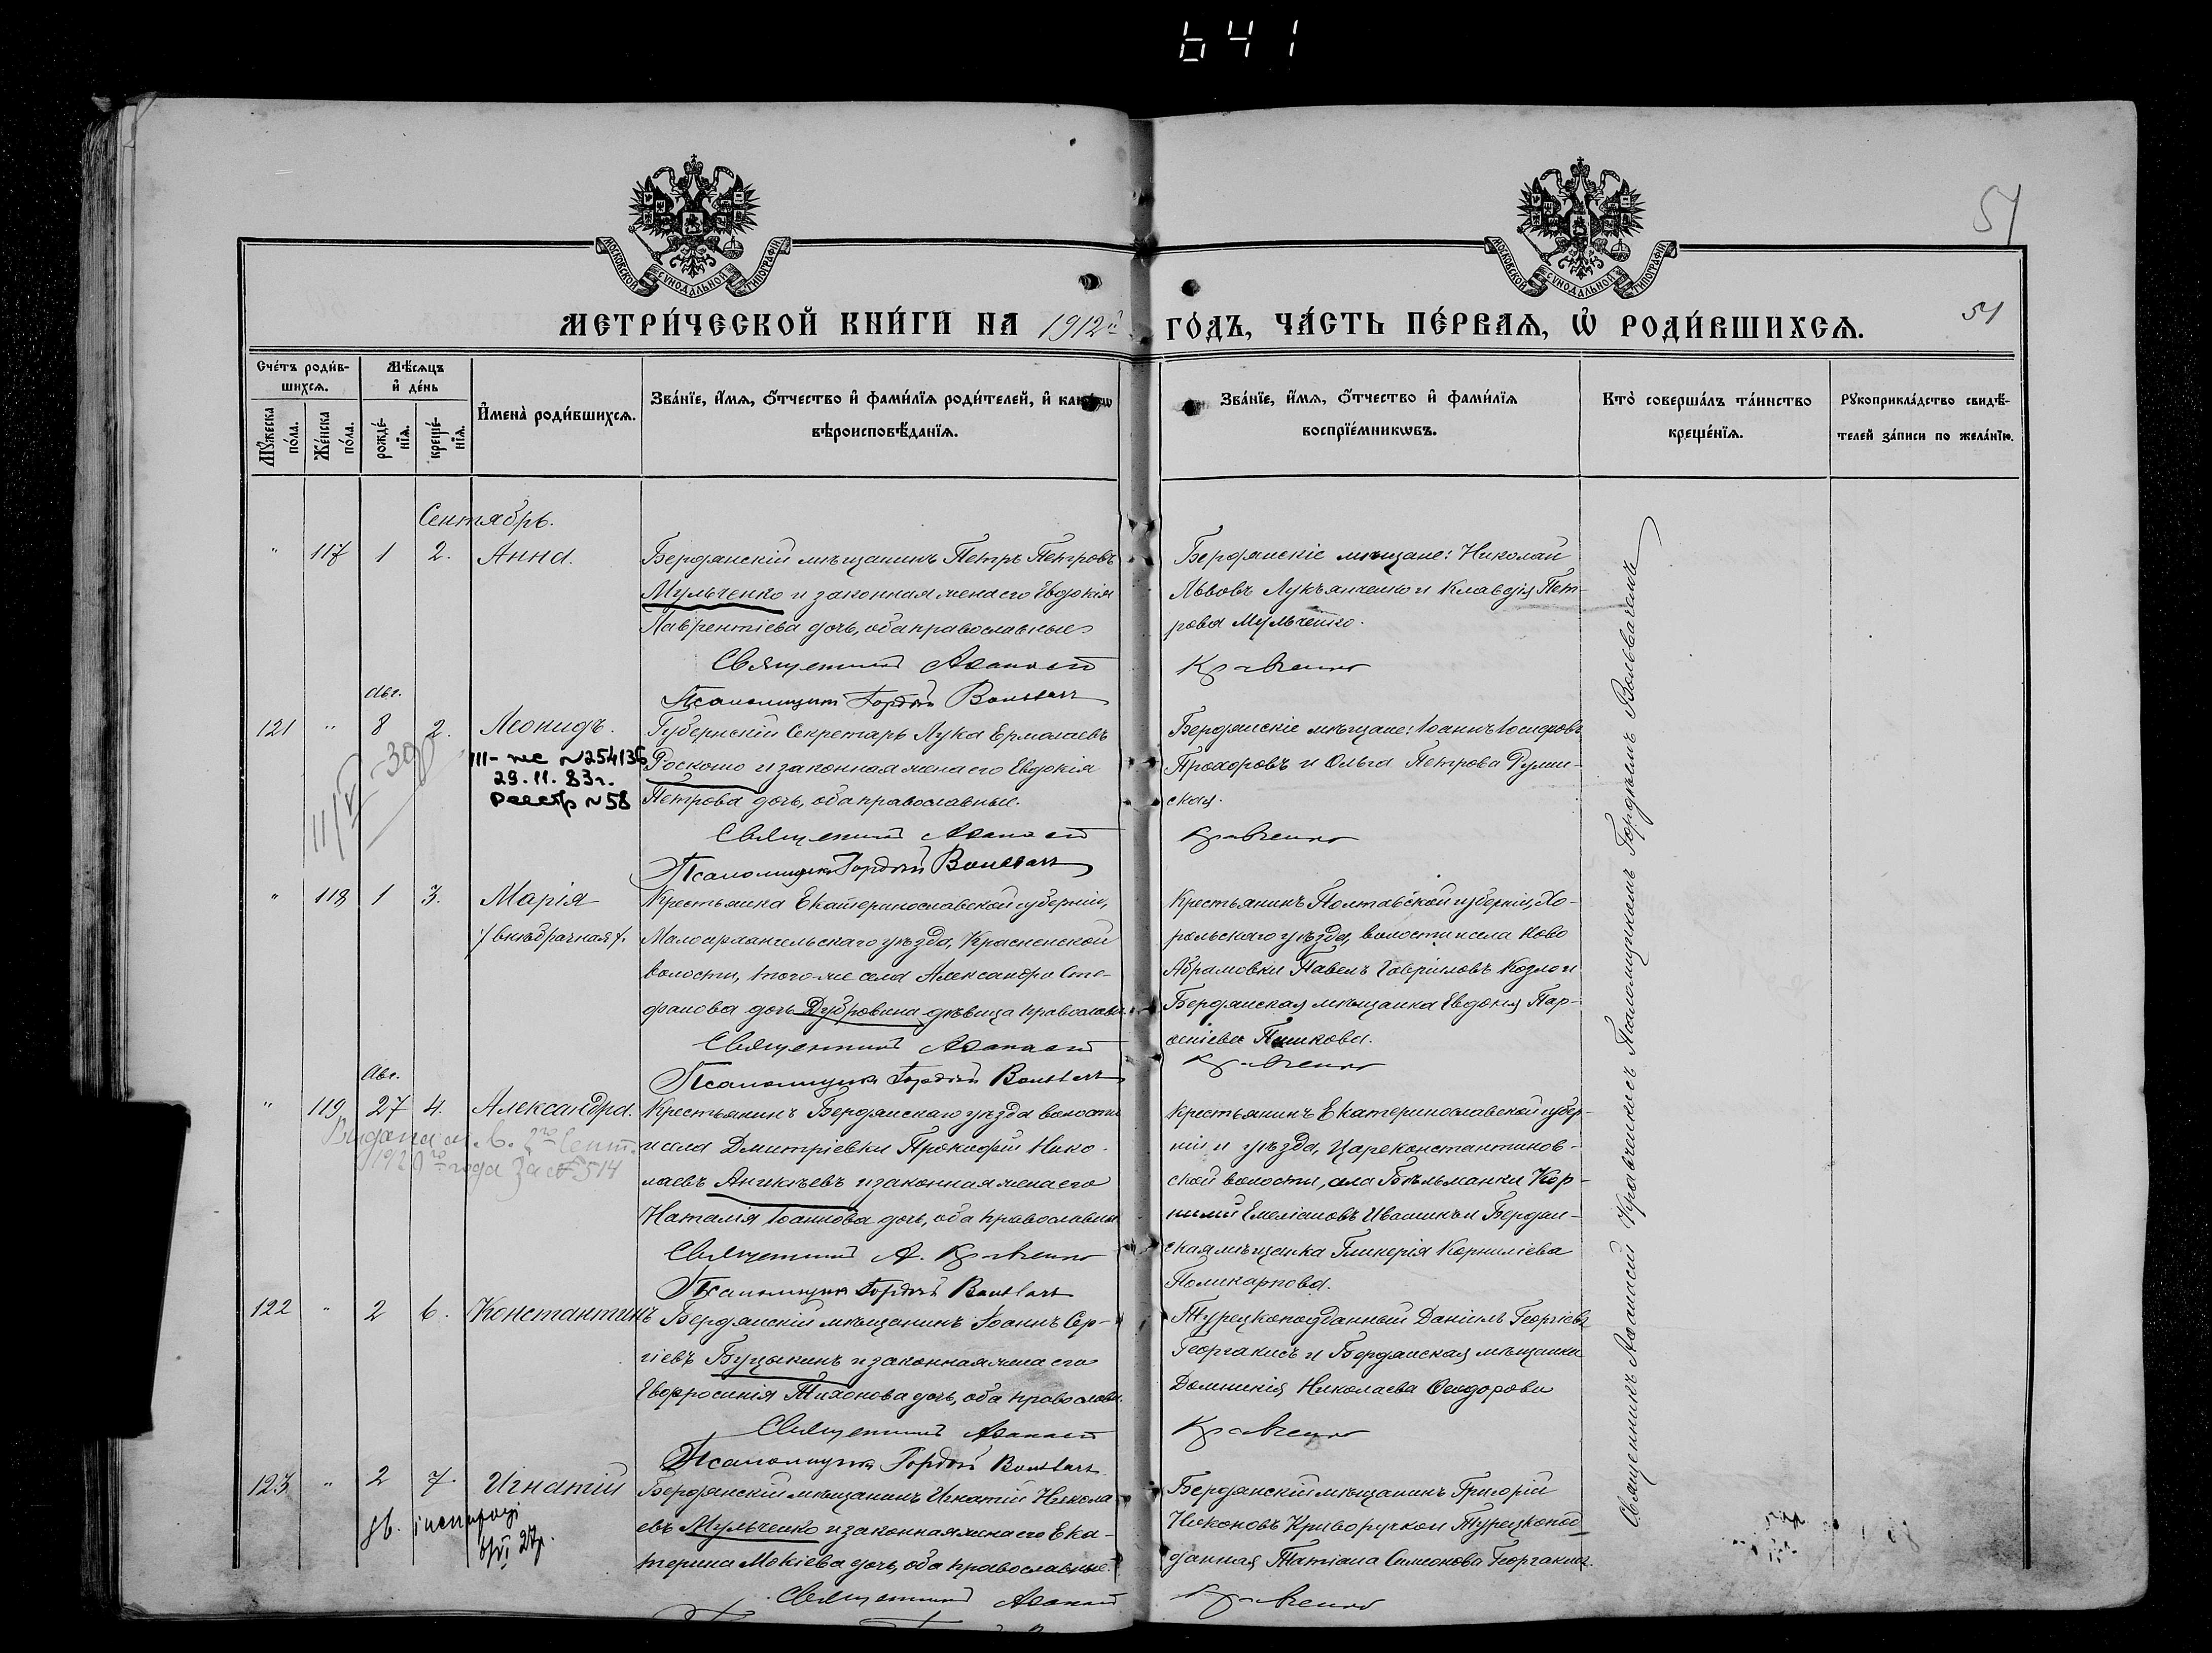 641
51
МОСКОВСКОЙ СУНОДАЛЬНОЙ ТИПОГРАФІИ
МОСКОВСКОЙ СУНОДАЛЬНОЙ ТИПОГРАФІИ
МЕТРИ́ЧЕСКОЙ КНИ́ГИ НА 1912й ГО́ДЪ, ЧА́СТЬ ПЕ́РВАѦ, Ѡ РОДИ́ВШИХСѦ.
51
Сче́тъ роди́вшихсѧ.
Мꙋ́жеска по́ла.
Же́нска по́ла.
Мѣ́сѧцъ и҆ де́нь
рожде́нїѧ.
креще́нїѧ.
И҆мена̀ роди́вшихсѧ.
Зва́нїе, и҆́мѧ, ѻ҆́тчество и҆ фами́лїѧ роди́телей, и҆
вѣроисповѣ́данїѧ.
Зва́нїе, и҆́мѧ, ѻ҆́тчество и҆ фами́лїѧ
воспрїе́мникѡвъ.
Кто̀ соверша́лъ та́инство
креще́нїѧ.
Рꙋкоприкла́дство свидѣ́-
телей за́писи по жела́нїю.
Сентябрь.
" 117 1 2. Анна.
Бердянскій мѣщанинъ Петръ Петровъ
Мульченко и законная жена его Евдокія
Лаврентіева дочь, оба православные
Священникъ Аѳанасій Кравченко
Псаломщикъ Гордѣй
Бердянскіе мѣщане: Николай
Львовъ Лукьянченко и Клавдія Пет-
рова Мульченко.
Авг.
121 " 8 2. Леонидъ.
III-же №254136
29.11.83г.
Реестр №58
Губернскій Секретарь Лука Ермолаевъ
Роскошо и законная жена его Евдокія
Петрова дочь, оба православные.
Священникъ Аѳанасій Кравченко
Псаломщикъ Гордѣй
Бердянскіе мѣщане: Іоаннъ Іосифовъ
Прохоровъ и Ольга Петрова
ская.
" 118 1 3. Марія
/внѣбрачная/.
Крестьянка Екатеринославской губерніи,
Малоархангельскаго уѣзда, Красненской
волости, того-же села Александра Сте-
фанова дочь Дубровина дѣвица православн.
Священникъ Аѳанасій Кравченко
Псаломщикъ Гордѣй
Крестьянинъ Полтавской губерніи, Хо-
рольскаго уѣзда, волости и села Ново
Абрамовки Павелъ Гавріиловъ Козло и
Бердянская мѣщанка Евдокія Пар-
ѳеніева Пашкова.
Авг.
" 119 27 4. Александра.
Выдана м. в.
года за № 514
Крестьянинъ Бердянскаго уѣзда волости
и села Дмитріевки Прокофій Нико-
лаевъ Аникѣевъ и законная жена его
Наталія Іоаннова дочь, оба православные
Священникъ А. Кравченко
Псаломщикъ Гордѣй
Крестьянинъ Екатеринославской губер-
ніи и уѣзда, Цареконстантинов-
ской волости, села Бѣльманки Кор-
нилій Емеліановъ Ивашинъ и Бердян-
ская мѣщанка Гликерія Корниліева
Поликарпова.
122 " 2 6. Константинъ
Бердянскій мѣщанинъ Іоаннъ Сер-
гіевъ Буцыкинъ и законная жена его
Евфросинія Тихонова дочь, оба православн.
Священникъ Аѳанасій Кравченко
Псаломщикъ Гордѣй
Турецкоподданный Даніилъ Георгіевъ
Георгакисъ и Бердянская мѣщанка
Домникія Николаева Ѳеодорова
123 " 2 7. Игнатій
Бердянскій мѣщанинъ Игнатій Никола-
евъ Мульченко и законная жена его Ека-
терина Мокіева дочь, оба православные.
Священникъ Аѳанасій Кравченко
Бердянскій мѣщанинъ Григорій
Никоновъ Криворучко и Турецкопод-
данная Татіана Симеонова Георгакисъ.
Священникъ Аѳанасій Кравченко съ Псаломщикомъ Гордѣемъ